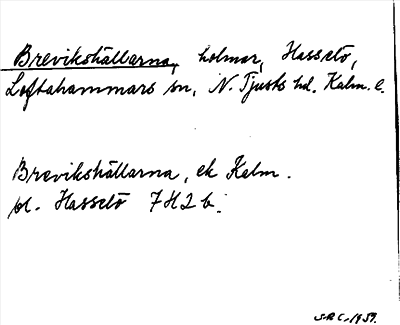 Brevikshällarna, holmar, Hasselö,
Loftahammars sn, N. Tjusts hd. Kalm. l.
Brevikshällarna, ek Kalm.
bl. Hasselö 7H2b.
S.R.C. 1959.